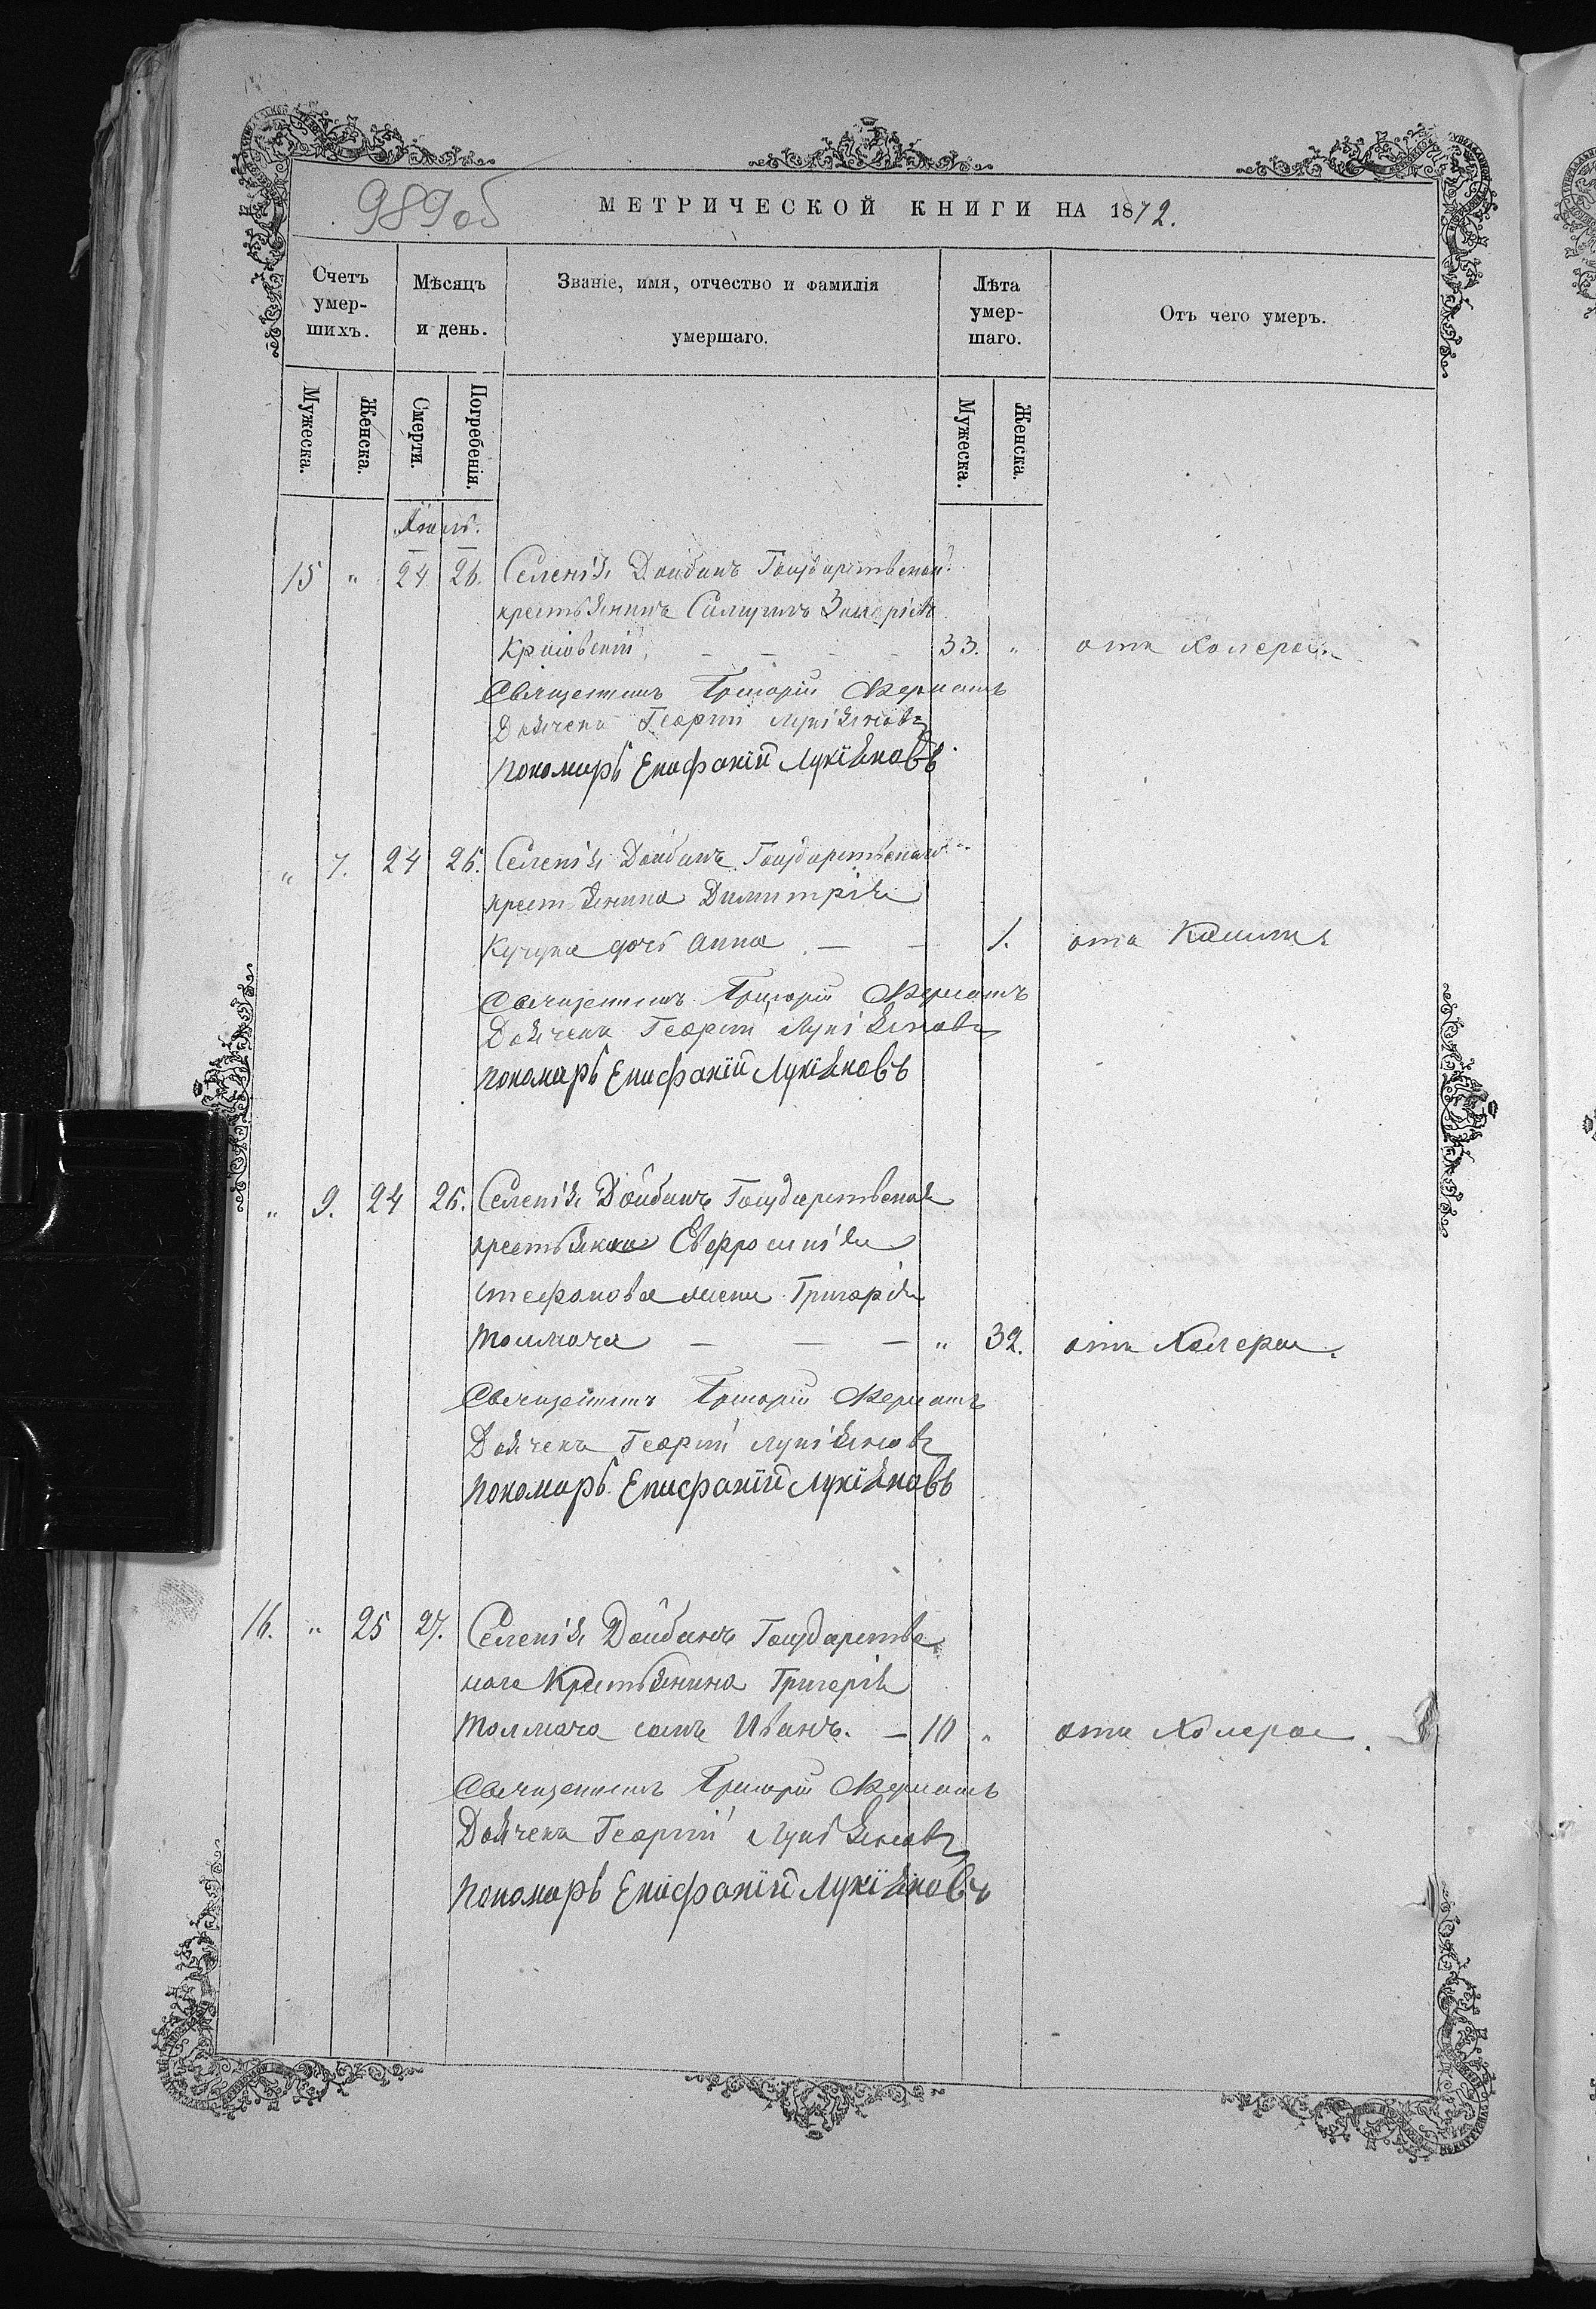 989 об
МЕТРИЧЕСКОЙ КНИГИ НА 1872.
Счетъ умер-шихъ.
Мѣсяцъ и день.
Званіе, имя, отчество и фамилія умершаго.
Лѣта умер-шаго.
Отъ чего умеръ.
Мужеска. Женска. Смерти. Погребенія. Мужеска. Женска.
15 " 24 26. Селенія Дойбанъ Государственой
крестьянинъ
33. " отъ холеры.
Священникъ Григорій
Дьячекъ Георгій Лукіяновъ
пономарь Епифаній Лукіяновъ
" 7. 24 26. Селенія Дойбанъ Государственаго
крестьянина Димитрія
Кучука дочь Анна — — 1. отъ Кашля
Священникъ Григорій
Дьячекъ Георгій Лукіяновъ
пономарь Епифаній Лукіяновъ
" 9. 24 26. Селенія Дойбанъ Государственая
крестьянка Евфросинія
Стефанова жена Григорія
Толмача — — — " 32. отъ Холеры.
Священникъ Григорій
Дьячекъ Георгій Лукіяновъ
пономарь Епифаній Лукіяновъ
16. " 25 27. Селенія Дойбанъ Государстве
наго Крестьянина Григорія
Толмача сынъ Иванъ. — 10 " отъ Холеры.
Священникъ Григорій
Дьячекъ Георгій Лукіяновъ
пономарь Епифаній Лукіяновъ